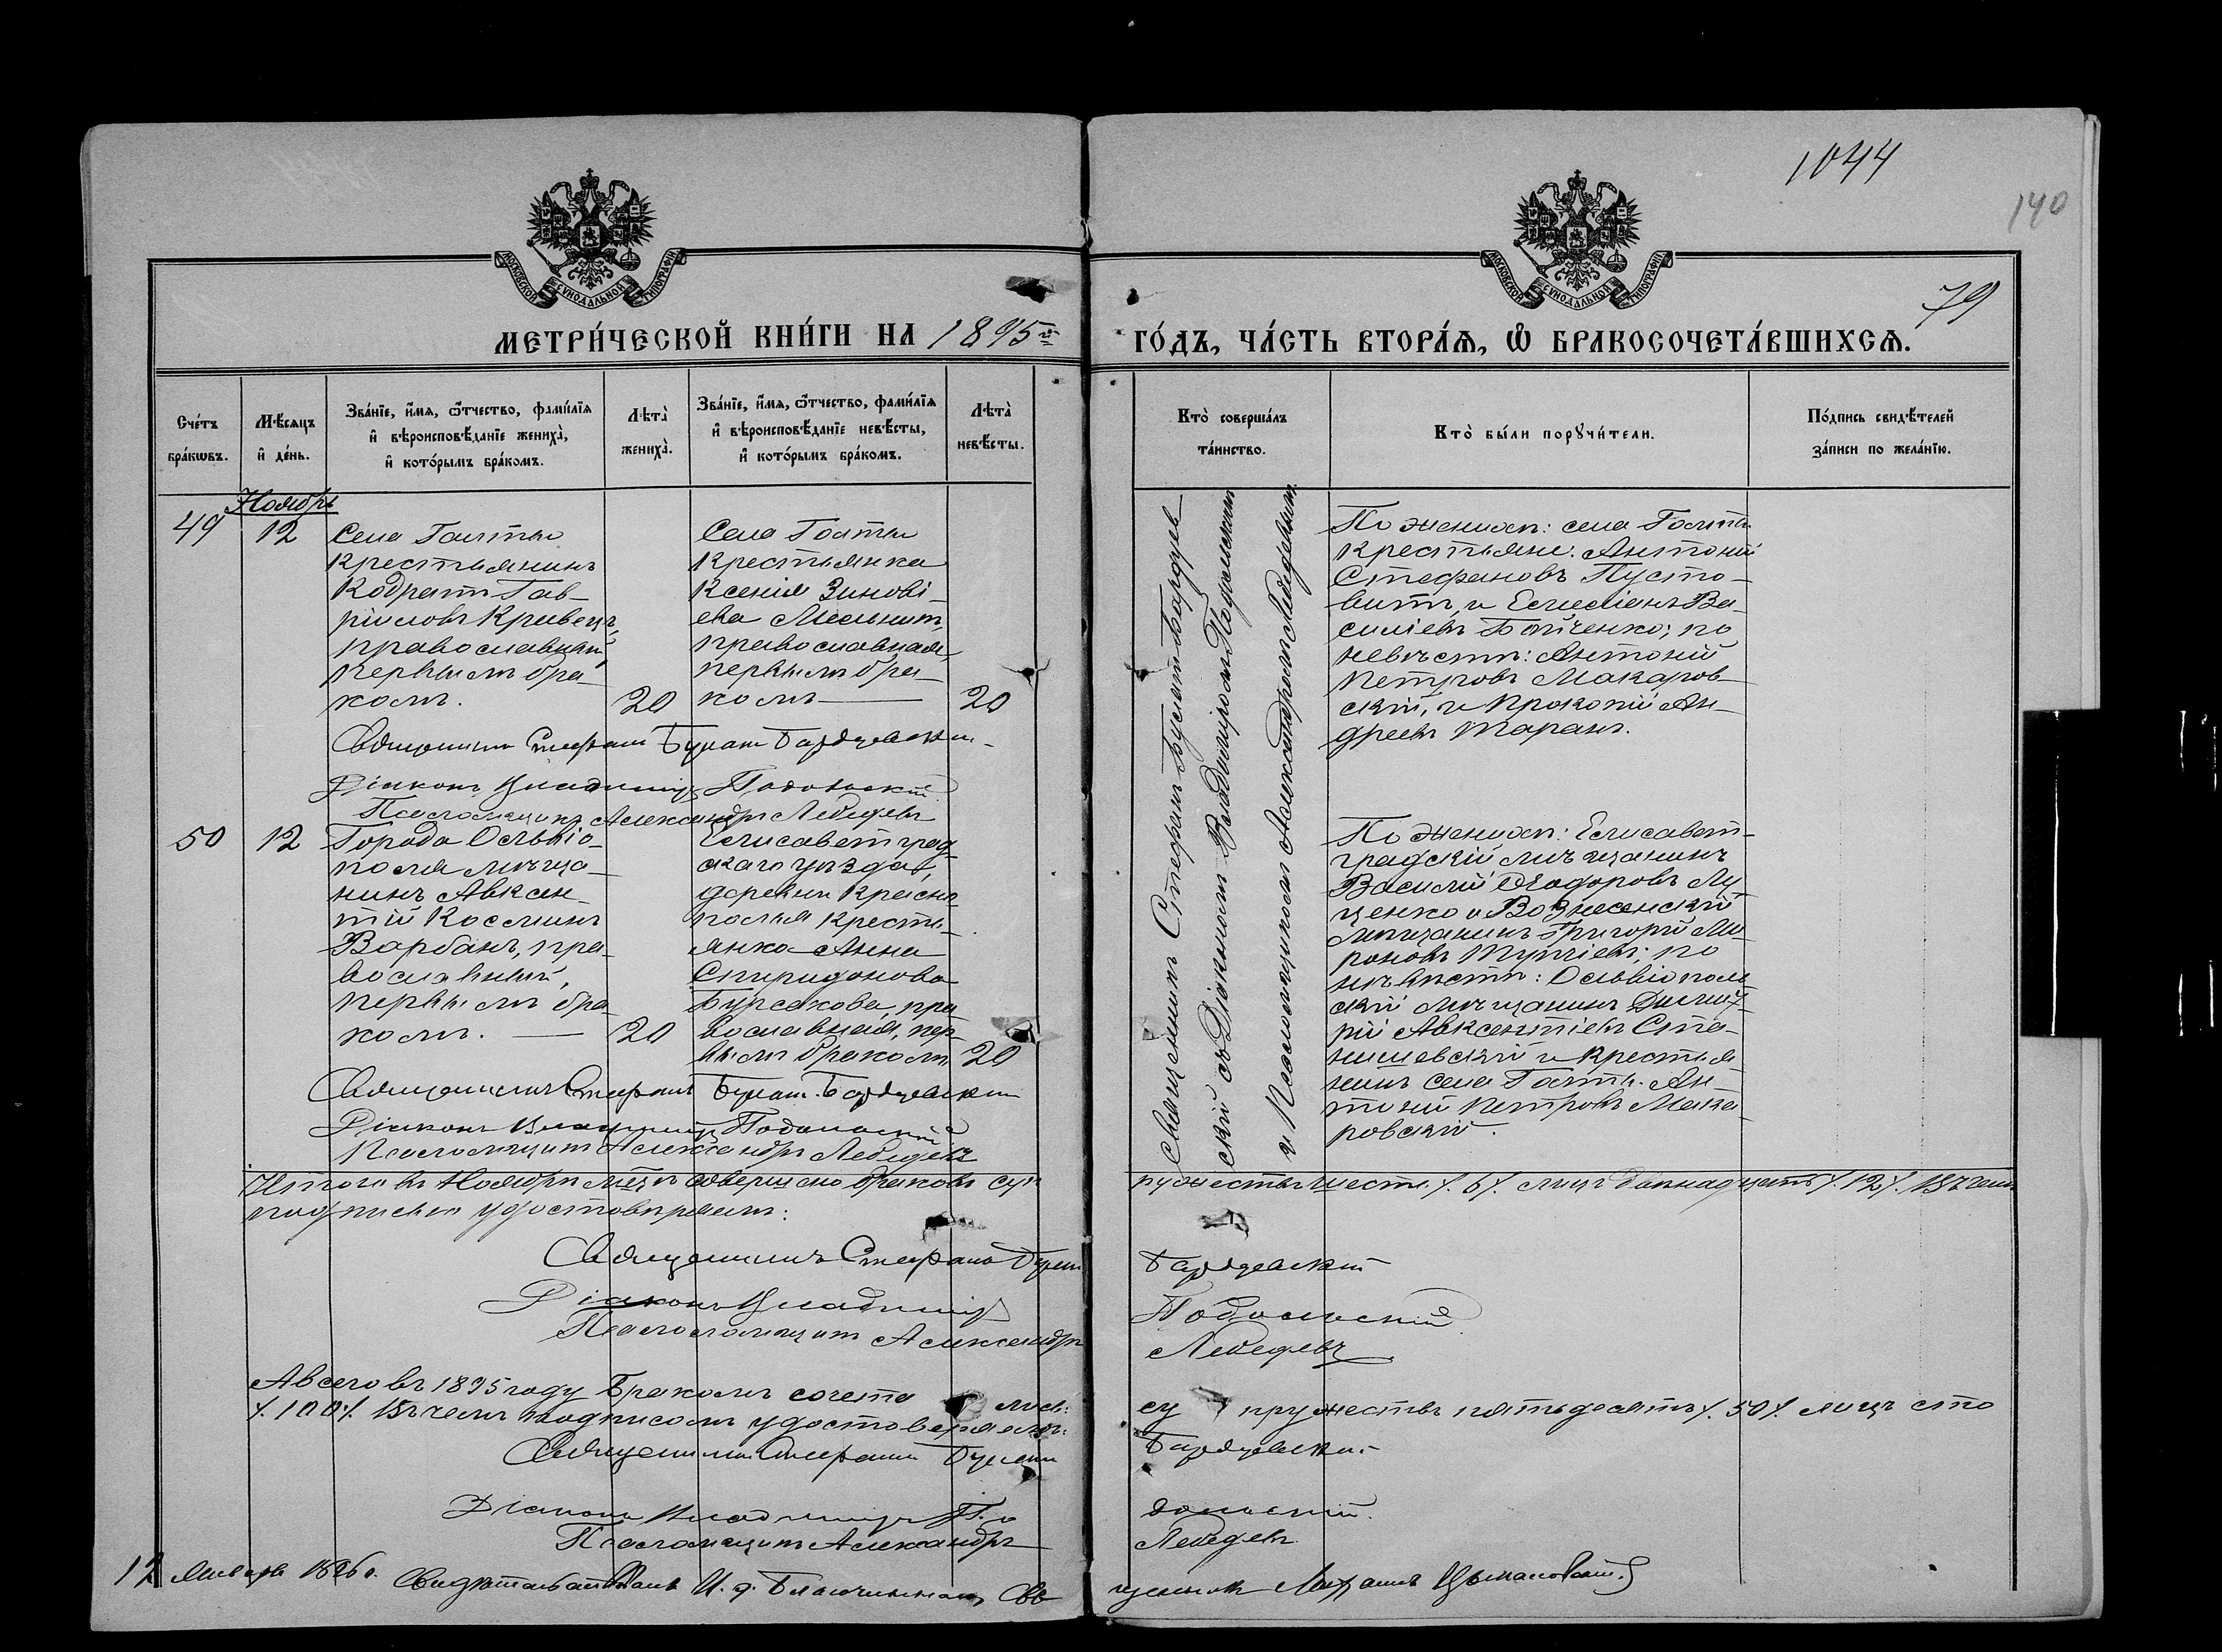 1044
140
79
МОСКОВСКОЙ СѴНОДАЛЬНОЙ ТИПОГРАФІИ
МОСКОВСКОЙ СѴНОДАЛЬНОЙ ТИПОГРАФІИ
МЕТРИ́ЧЕСКОЙ КНИ́ГИ НА 1895й
ГО́ДЪ, ЧА́СТЬ ВТОРА́Ѧ, Ѽ БРАКОСОЧЕТА́ВШИХСѦ.
Сче́тъ
бра́кѡвъ.
Мѣ́сяцъ
и҆ де́нь.
Зва́нїе, и҆́мѧ, ѻ҆́тчество, фами́лїѧ
и҆ вѣроисповѣ́данїе жениха̀,
и҆ кото́рымъ бра́комъ.
Лѣта̀
жениха̀.
Зва́нїе, и҆́мѧ, ѻ҆́тчество, фами́лїѧ
и҆ вѣроисповѣ́данїе невѣ́сты,
и҆ кото́рымъ бра́комъ.
Лѣта̀
невѣ́сты.
Кто̀ соверша́лъ
та́инство.
Кто̀ бы́ли порꙋчи́тели.
По́дпись свидѣ́телей
за́писи по жела́нїю.
Ноябрь
49
12
Села Голты
крестьянинъ
Кодратъ Гав-
рииловъ Кривецъ,
православный,
первымъ бра-
комъ.
20
Села Голты
крестьянка
Ксенія Зинові-
ева Мельникъ,
православная,
первымъ бра-
комъ
20
Священникъ Стефанъ Буцанъ-Бардзевскій
Діаконъ Владиміръ Подольскій
Псаломщикъ Александръ Лебедевъ
По женихѣ: села Голты
крестьяне: Антоній
Стефановъ Пусто-
витъ, и Емиліанъ Ва-
силіевъ Бойченко; по
невѣстѣ: Антоній
Петровъ Макаров-
скій, и Прокопій Ан-
дреевъ Таранъ.
50
12
Города Ольвіо-
поля мѣща-
нинъ Авксен-
тій Косминъ
Варбанъ, пра-
вославный,
первымъ бра-
комъ.
20
Елисаветград-
скаго уѣзда,
деревни Красно-
полья крестья-
янка Анна
Спиридонова
Бурсакова, пра-
вославная, пер-
вымъ бракомъ
20
Священникъ Стефанъ Буцанъ-Бардзевскій
Діаконъ Владиміръ Подольскій
Псаломщикъ Александръ Лебедевъ
По женихѣ: Елисавет-
градскій мѣщанинъ
Василій Ѳеодоровъ Лу-
ценко и Вознесенскій
мѣщанинъ Григорій Ми-
роновъ; по
невѣстѣ: Ольвіополь-
скій мѣщанинъ Димит-
рій Авксентіевъ Ста-
нишевскій и крестья-
нинъ села Голты Ан-
тоній Петровъ Мака-
ровскій.
Священникъ Стефанъ Буцанъ-Бардзев-
скій съ Діакономъ Владиміромъ Подольскимъ
и Псаломщикомъ Александромъ Лебедевымъ
Итого въ Ноябрѣ мцѣ совершено браковъ суп
ружествъ шесть /. 6 /. лицъ двѣнадцать /. 12 /. Въ чемъ
подписью удостовѣряемъ:
Священникъ Стефанъ Буцанъ Бардзевскій
Діаконъ Владиміръ Подольскій
Псаломщикъ Александръ Лебедевъ
А всего въ 1895 году бракомъ сочета
су пружествъ пятьдесятъ /. 50 /. лицъ сто
/. 100 /. Въ чемъ подписомъ удостовѣряемъ:
Священникъ Стефанъ Буцанъ Бардзевскій
Діаконъ Владиміръ Подольскій
Псаломщикъ Александръ Лебедевъ
12 Января 1896 г. Свидѣтельствовалъ И. д. Благочиннаго, Священникъ Михаилъ